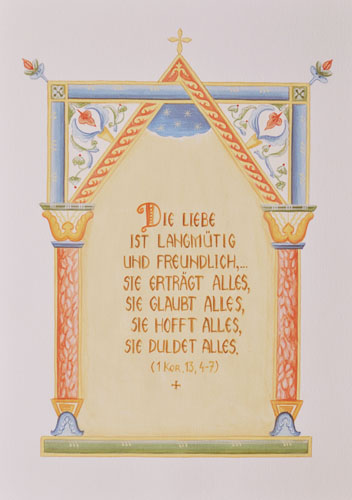 Die Liebe
ist langmütig
und freundlich,...
sie erträgt alles,
sie glaubt alles,
sie hofft alles,
sie duldet alles.
(1 Kor. 13, 4-7)